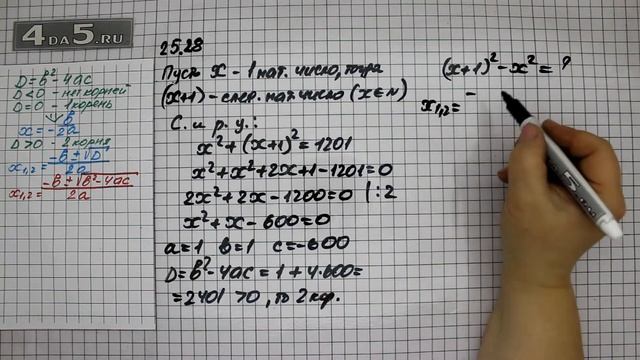 4DA5.RU
D=b²-4ac
D<0 - нет корней
D=0 - 1 корень
x=-b/2a
D>0 - 2 корня
x₁,₂=(-b±√D)/2a
x₁,₂=(-b±√b²-4ac)/2a
25.28
Пусть x - 1 нат. число, тогда
(x+1) - след. нат. число (x∈N)
С. и р. у.:
x²+(x+1)²=1201
x²+x²+2x+1-1201=0
2x²+2x-1200=0 |:2
x²+x-600=0
a=1 b=1 c=-600
D=b²-4ac=1+4·600=
=2401>0, то 2 кор.
(x+1)²-x²=?
x₁,₂= -